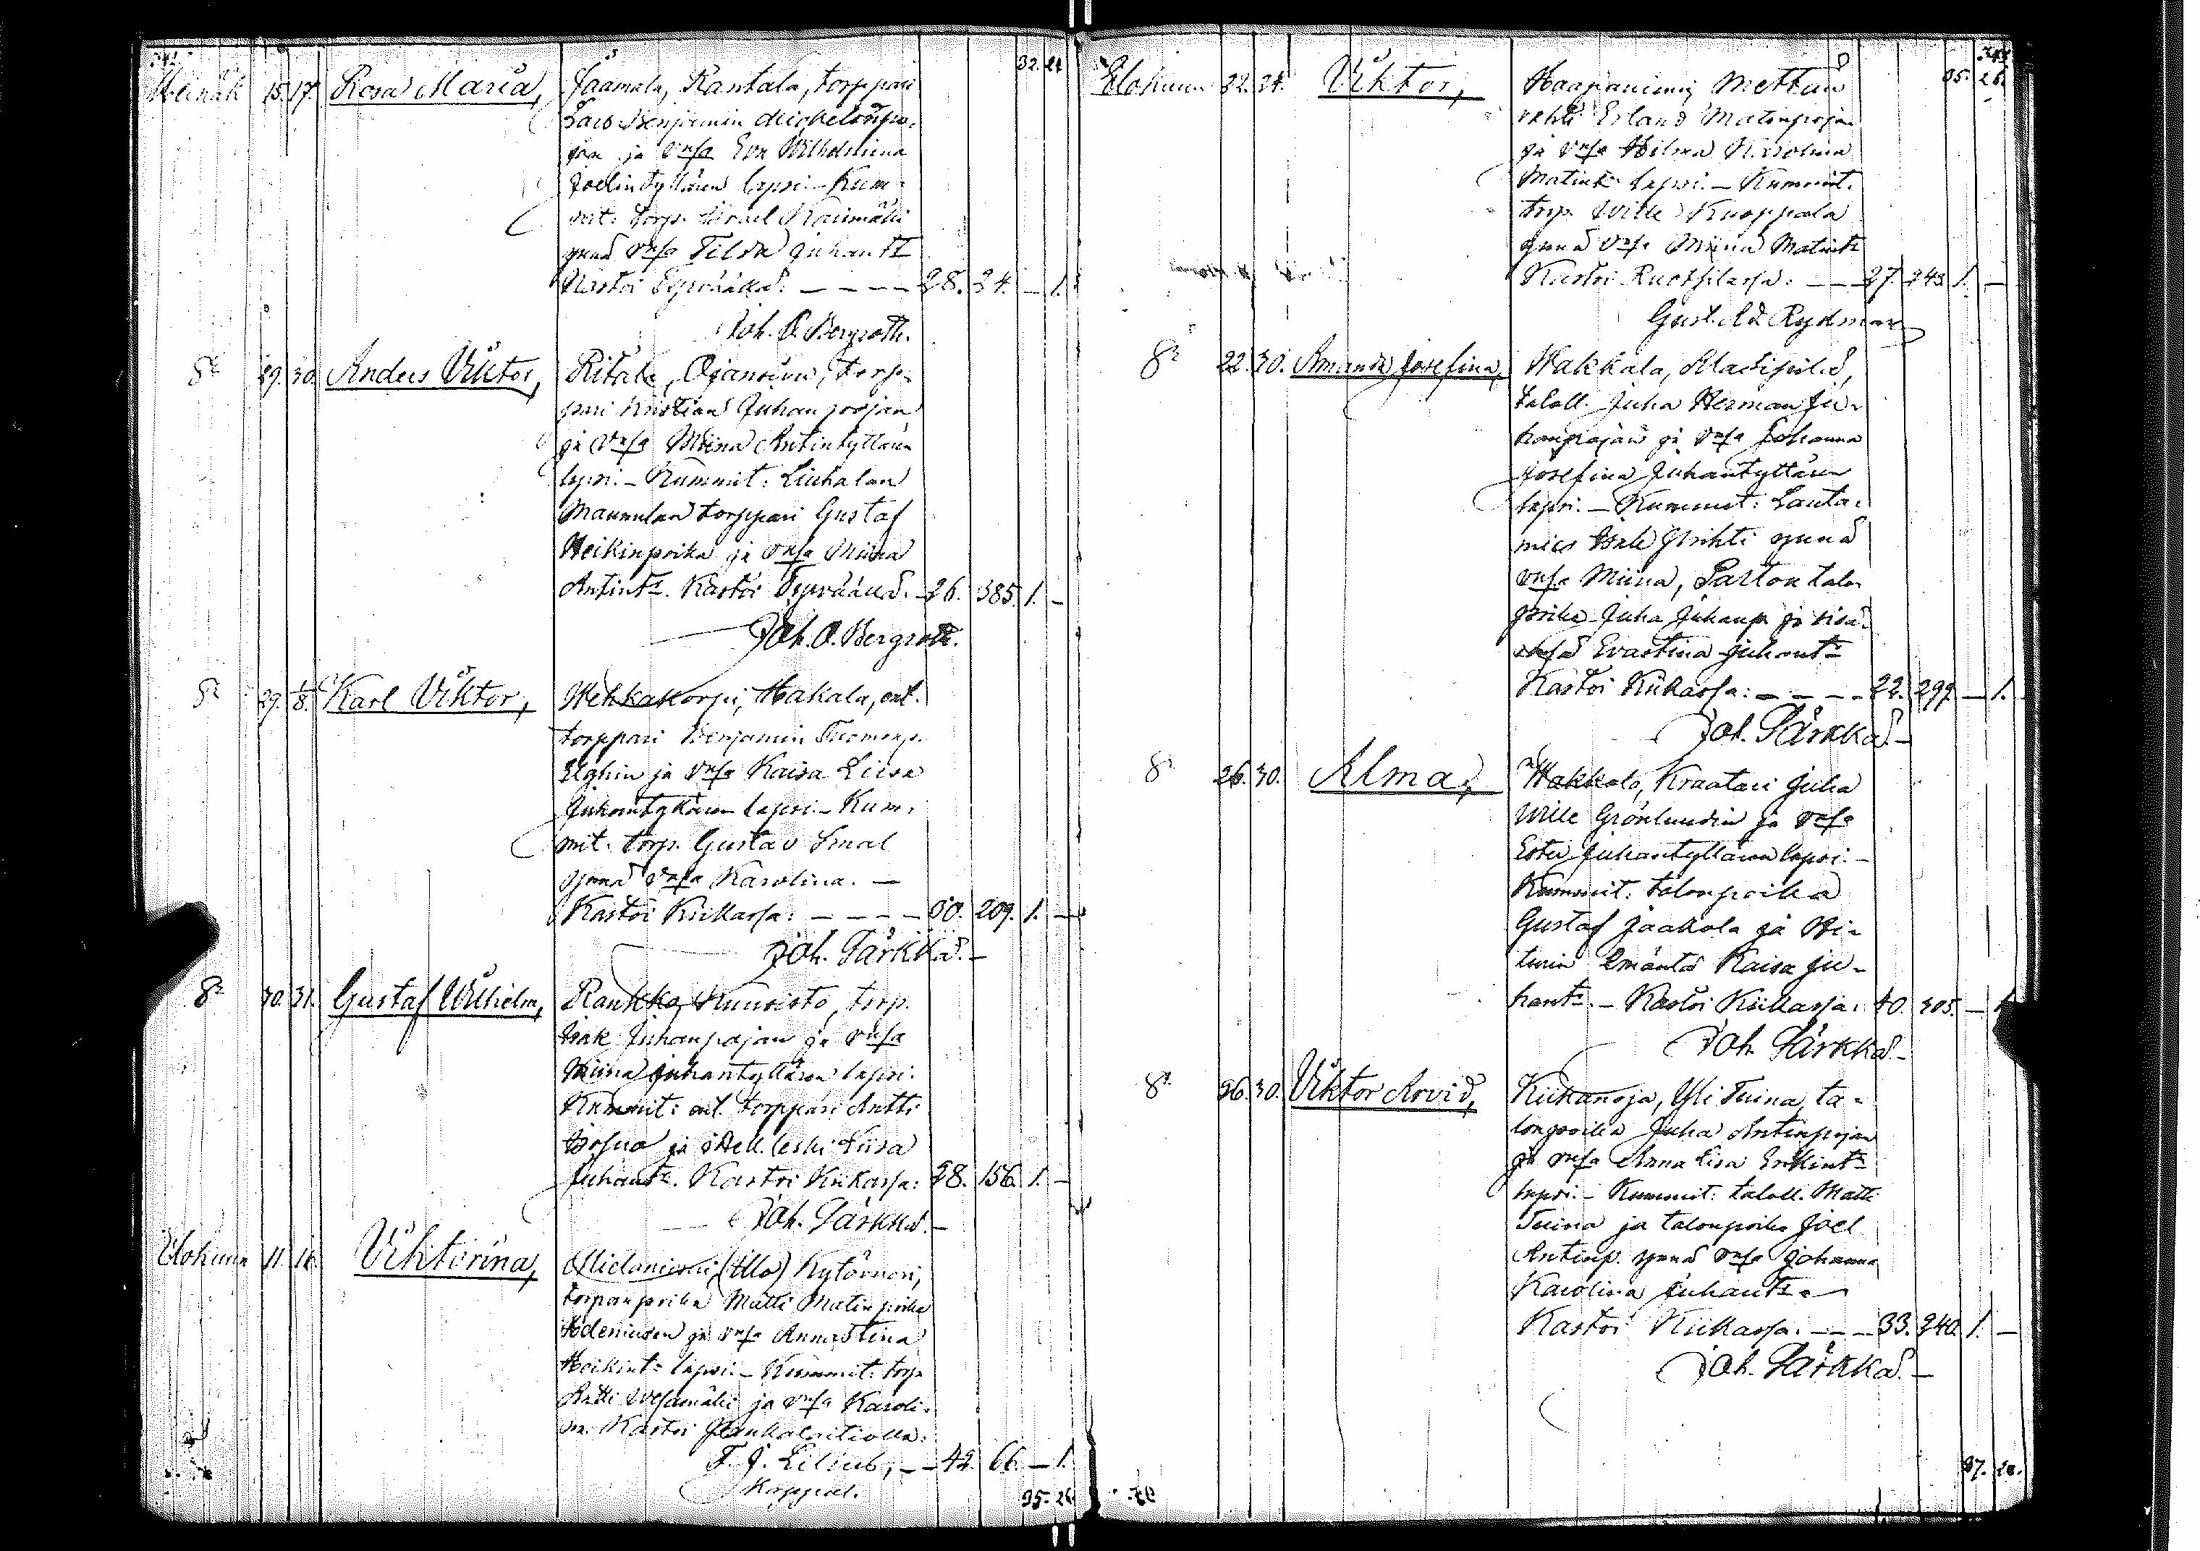 32. 24
Heinäk 15. 17. Rosa Maria, Jaamala, Rantala, torppari
Benjamin
jan ja vmsa Eva Wilhelmina
Joelintyttären lapsi. - Kum-
mit: torp. Israel
ynnä vmsa Tilda Juhantr
Kastoi - - - - 28. 24. - 1.
Joh. O. Bergroth.
Sr 29. 30. Anders Viktor, Ritala, Ojansivu, torp-
pari Kristian Juhanpojan
ja vmsa Miina Antintyttären
lapsi. - Kummit: Liuhalan
Maunulan torppari Gustaf
Heikinpoika ja vmsa Miina
Antintr. Kastoi - 26. 385. 1. -
Joh. O. Bergroth.
Sr 29. 1/8. Karl Viktor, Wehkakorpi, Hakala, ent.
torppari Benjamin Tuomenp.
ja vmsa Kaisa Liisa
Juhantyttären lapsi - Kum-
mit. torp. Gustav
ynnä vmsa Karolina. -
Kastoi Kiikassa: - - - - 30. 209. 1. -
Joh. Särkkä. -
Sr 30. 31. Gustaf Wilhelm, Rankka, Kuuvisto, torp.
Isak Juhanpojan ja vmsa
Miina Juhantyttären lapsi.
Kummit: ent. torppari Antti
ja leski Liisa
Juhantr. Kastoi Kiikassa: 28. 156. 1. -
Joh. Särkkä. -
Elokuun 11. 16. Viktorina, (Illo) Kytövuori,
torpanpoika Matti Matinpoika
ja vmsa Annastina
Heikintr lapsi. - Kummit: torp
Antti Wesamäki ja vmsa Karoli-
na. Kastoi
F. J. Lilius, - 42. 66. - 1.
Kappal.
35. 26.
343
35. 26.
Elokuun 22. 24. Viktor, Haapaniemi, Mettän
vahti Erland Matinpojan
ja vmsa Hilma Karolina
Matintr lapsi. - Kummit.
torp. Wille Kuoppala
ynnä vmsa Miina Matintr
Kastoi Ruotsilassa: - - 27. 243. 1. -
Gust. Ad. Rydman
Sr 22. 30. Amanda Josefina, Wakkala,
taloll. Juha Herman Ju-
hanpojan ja vmsa Johanna
Josefina Juhantyttären
lapsi. - Kummit: Lauta-
mies ynnä
vmsa Miina, talon
poika Juha Juhanp. ja sisa-
Evastina Juhantr
Kastoi Kiikassa: - - - - 22. 297. - 1.
Joh. Särkkä. -
Sr 26. 30. Alma, Wakkala, Kraatari Juha
Wille Grönlundin ja vmsa
Ester Juhantyttären lapsi. -
Kummit: talonpoika
Gustaf Jaakola ja
emäntä Kaisa Ju-
hantr. - Kastoi Kiikassa: 40. 305. - 1.
Joh. Särkkä -
Sr 26. 30. Viktor Arvid, Kiikanoja, Yli Tuina, ta-
lonpoika Juha Antinpojan
ja vmsa Anna Lisa Erkintr
lapsi. - Kummit: taloll. Matti
Tuina ja talonpoika Joel
Antinp. ynnä vmsa Johanna
Karolina Juhantr -
Kastoi Kiikassa: - - - 33. 240. 1. -
Joh. Särkkä. -
37. 28.